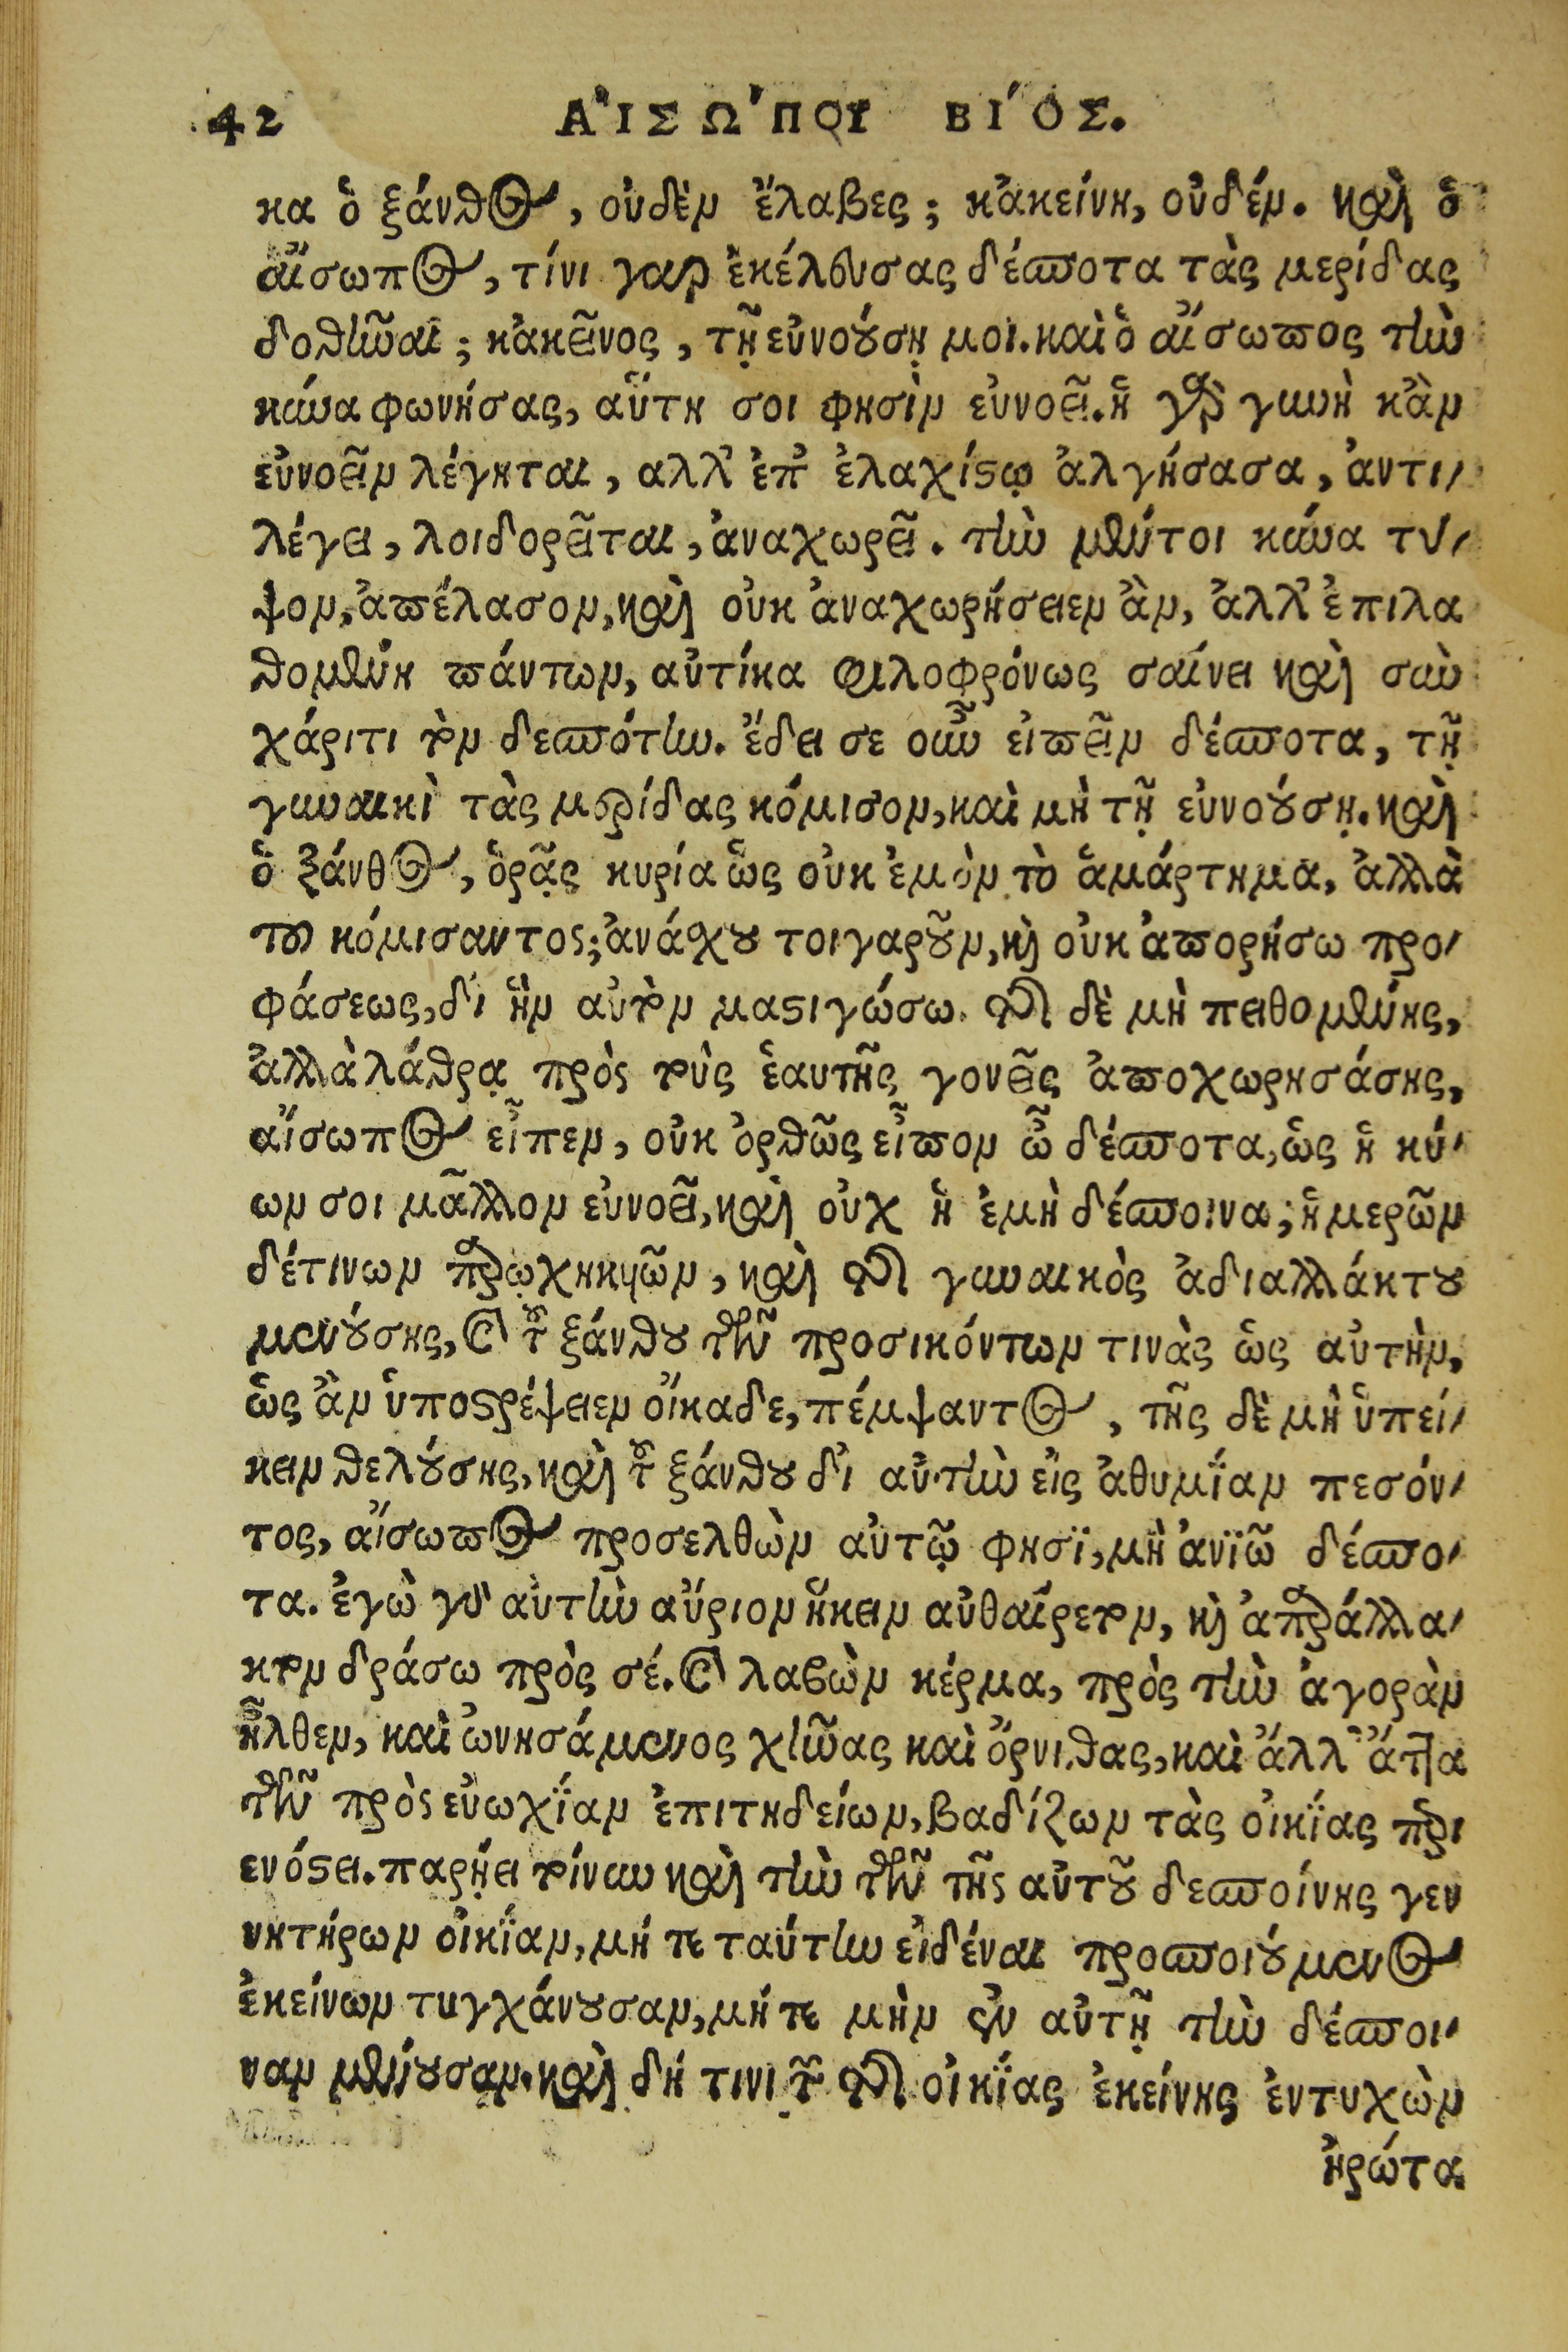 42 ΑἸΣΩ´ΠΟΥ ΒΙ´ΟΣ.
κα ὁ ξάνθος, οὐδὲν ἔλαβες; κἀκείνη, οὐδέν. καὶ ὁ
αἴσωπος, τίνι γαρ ἐκέλευσας δέσποτα τὰς μερίδας
δοθῆναι; κἀκεῖνος, τῇ εὐνούσῃ μοι. καὶ ὁ αἴσωπος τὴν
κύνα φωνήσας, αὕτη σοι φησὶν εὐνοεῖ. ἡ γὰρ γυνὴ κἂν
εὐνοεῖν λέγηται, αλλ' ἐπ' ἐλαχίστῳ ἀλγήσασα, ἀντι-
λέγει, λοιδορεῖται, ἀναχωρεῖ. τὴν μέντοι κύνα τύ-
ψον, ἀπέλασον, καὶ οὐκ ἀναχωρήσειεν ἂν, ἀλλ' ἐπιλα
θομένη πάντων, αὐτίκα φιλοφρόνως σαίνει καὶ σὺν
χάριτι τὸν δεσπότην. ἔδει σε οὖν εἰπεῖν δέσποτα, τῇ
γυναικὶ τὰς μερίδας κόμισον, καὶ μὴ τῇ εὐνούσῃ. καὶ
ὁ ξάνθος, ὁρᾷς κυρία ὡς οὐκ ἐμὸν τὸ ἁμάρτημα, ἀλλὰ
τοῦ κόμισαντος; ἀνάσχου τοιγαροῦν, καὶ οὐκ ἀπορήσω προ-
φάσεως, δι' ἣν αὐτὸν μαστιγώσω. τῆς δὲ μὴ πειθομένης,
ἀλλὰ λάθρᾳ πρὸς τοὺς ἑαυτῆς γονεῖς ἀποχωρησάσης,
αἴσωπος εἶπεν, οὐκ ὀρθῶς εἶπον ὦ δέσποτα, ὡς ἡ κύ-
ων σοι μᾶλλον εὐνοεῖ, καὶ οὐχ ἡ ἐμὴ δέσποινα; ἡμερῶν
δέ τινων παρῳχηκυιῶν, καὶ τῆς γυναικὸς ἀδιαλλάκτου
μενούσης, καὶ τοῦ ξάνθου τῶν προσικόντων τινὰς ὡς αὐτὴν,
ὡς ἂν ὑποστρέψειεν οἴκαδε, πέμψαντος, τῆς δὲ μὴ ὑπεί-
κειν θελούσης, καὶ τοῦ ξάνθου δι' αὐτὴν εἰς ἀθυμΐαν πεσόν-
τος, αἴσωπος προσελθὼν αὐτῷ φησΐ, μὴ ἀνϊῶ δέσπο-
τα. ἐγὼ γὰρ αὐτὴν αὔριον ἥκειν αὐθαίρετον, καὶ ἀπαράλλα-
κτον δράσω πρὸς σέ. καὶ λαβὼν κέρμα, πρὸς τὴν ἀγορὰν
ἦλθεν, καὶ ὠνησάμενος χῆνας καὶ ὄρνιθας, καὶ ἄλλ' ἄττα
τῶν πρὸς εὐωχΐαν ἐπιτηδείων, βαδίζων τὰς οἰκΐας περι
ενόστει. παρῄει τοίνυν καὶ τὴν τῶν τῆς αὐτοῦ δεσποίνης γεν
νητήρων οἰκΐαν, μήτε ταύτην εἰδέναι προσποιούμενος
ἐκείνων τυγχάνουσαν, μήτε μὴν ἐν αὐτῇ τὴν δέσποι-
ναν μένουσαν. καὶ δή τινι τῶν τῆς οἰκΐας ἐκείνης ἐντυχὼν
ἠρώτα